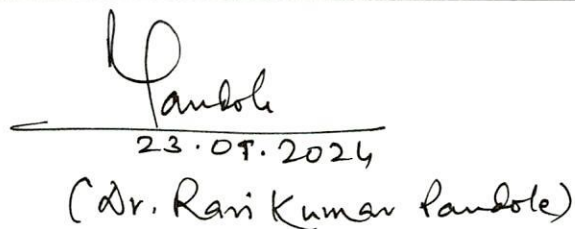 Pandole
23.05.2024
(Dr. Ravi Kumar Pandole)